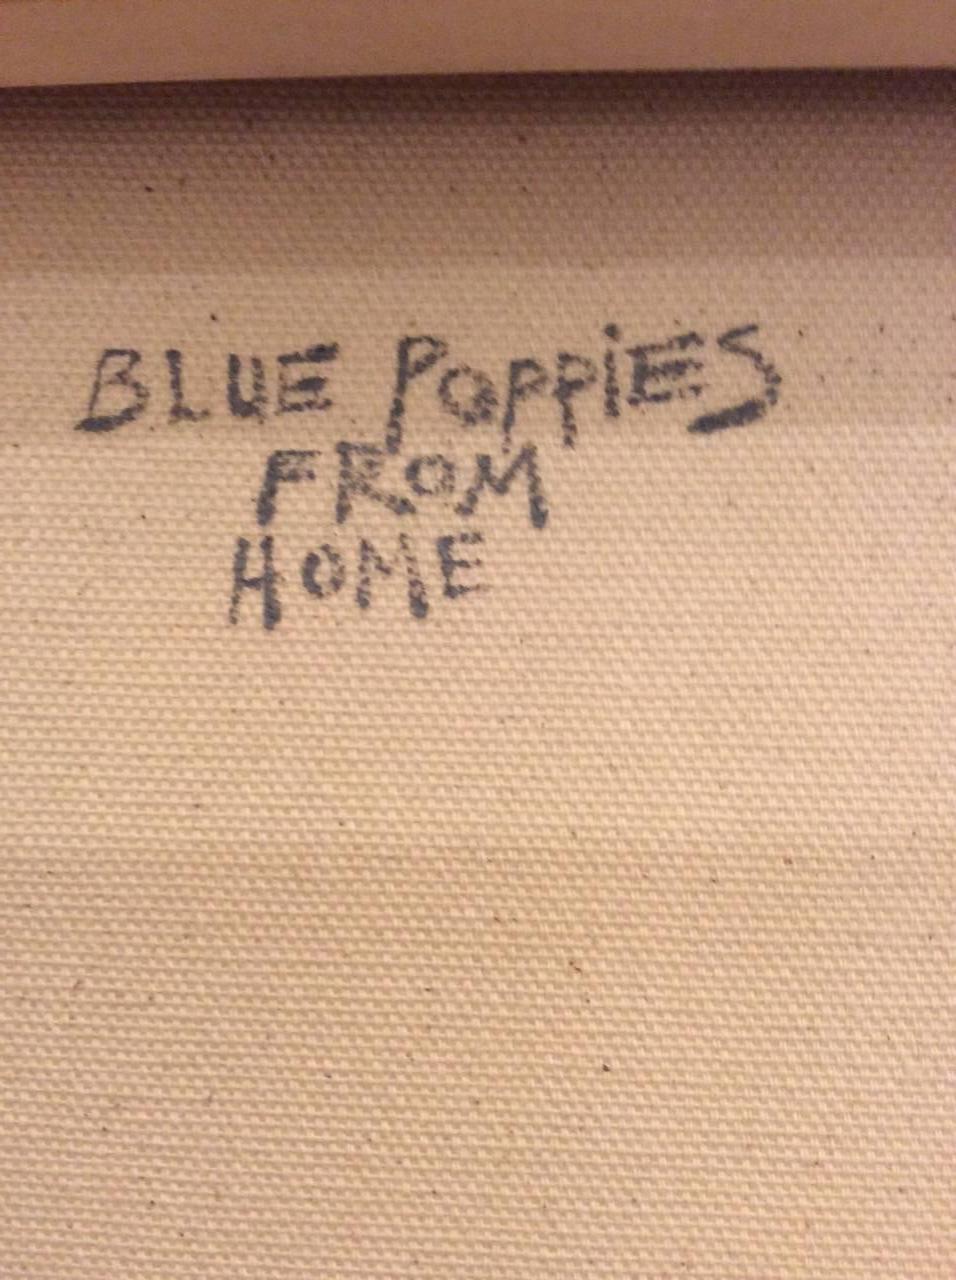 BLUE POPPiES
FROM
HOME